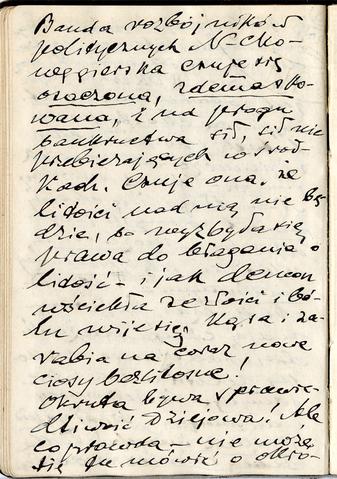 Banda rozbójników
politycznych N-cko-
węgierska czuje się
osaczona, zdemasko-
waną, i na progu
bankructwa sił, sił nie
przebierających w środ-
kach. Czuje ona, że
litości nad nią nie bę-
dzie, bo wyzbyła się
prawa do błagania o
litość - i jak demon
wściekła ze złości i bó-
lu wije się. Kąsa i za-
rabia na coraz nowe
ciosy bezlitosne!
Okrutą bywa sprawie-
dliwość dziejowa! Ale
co prawda - nie można
się tu mówić o okru-